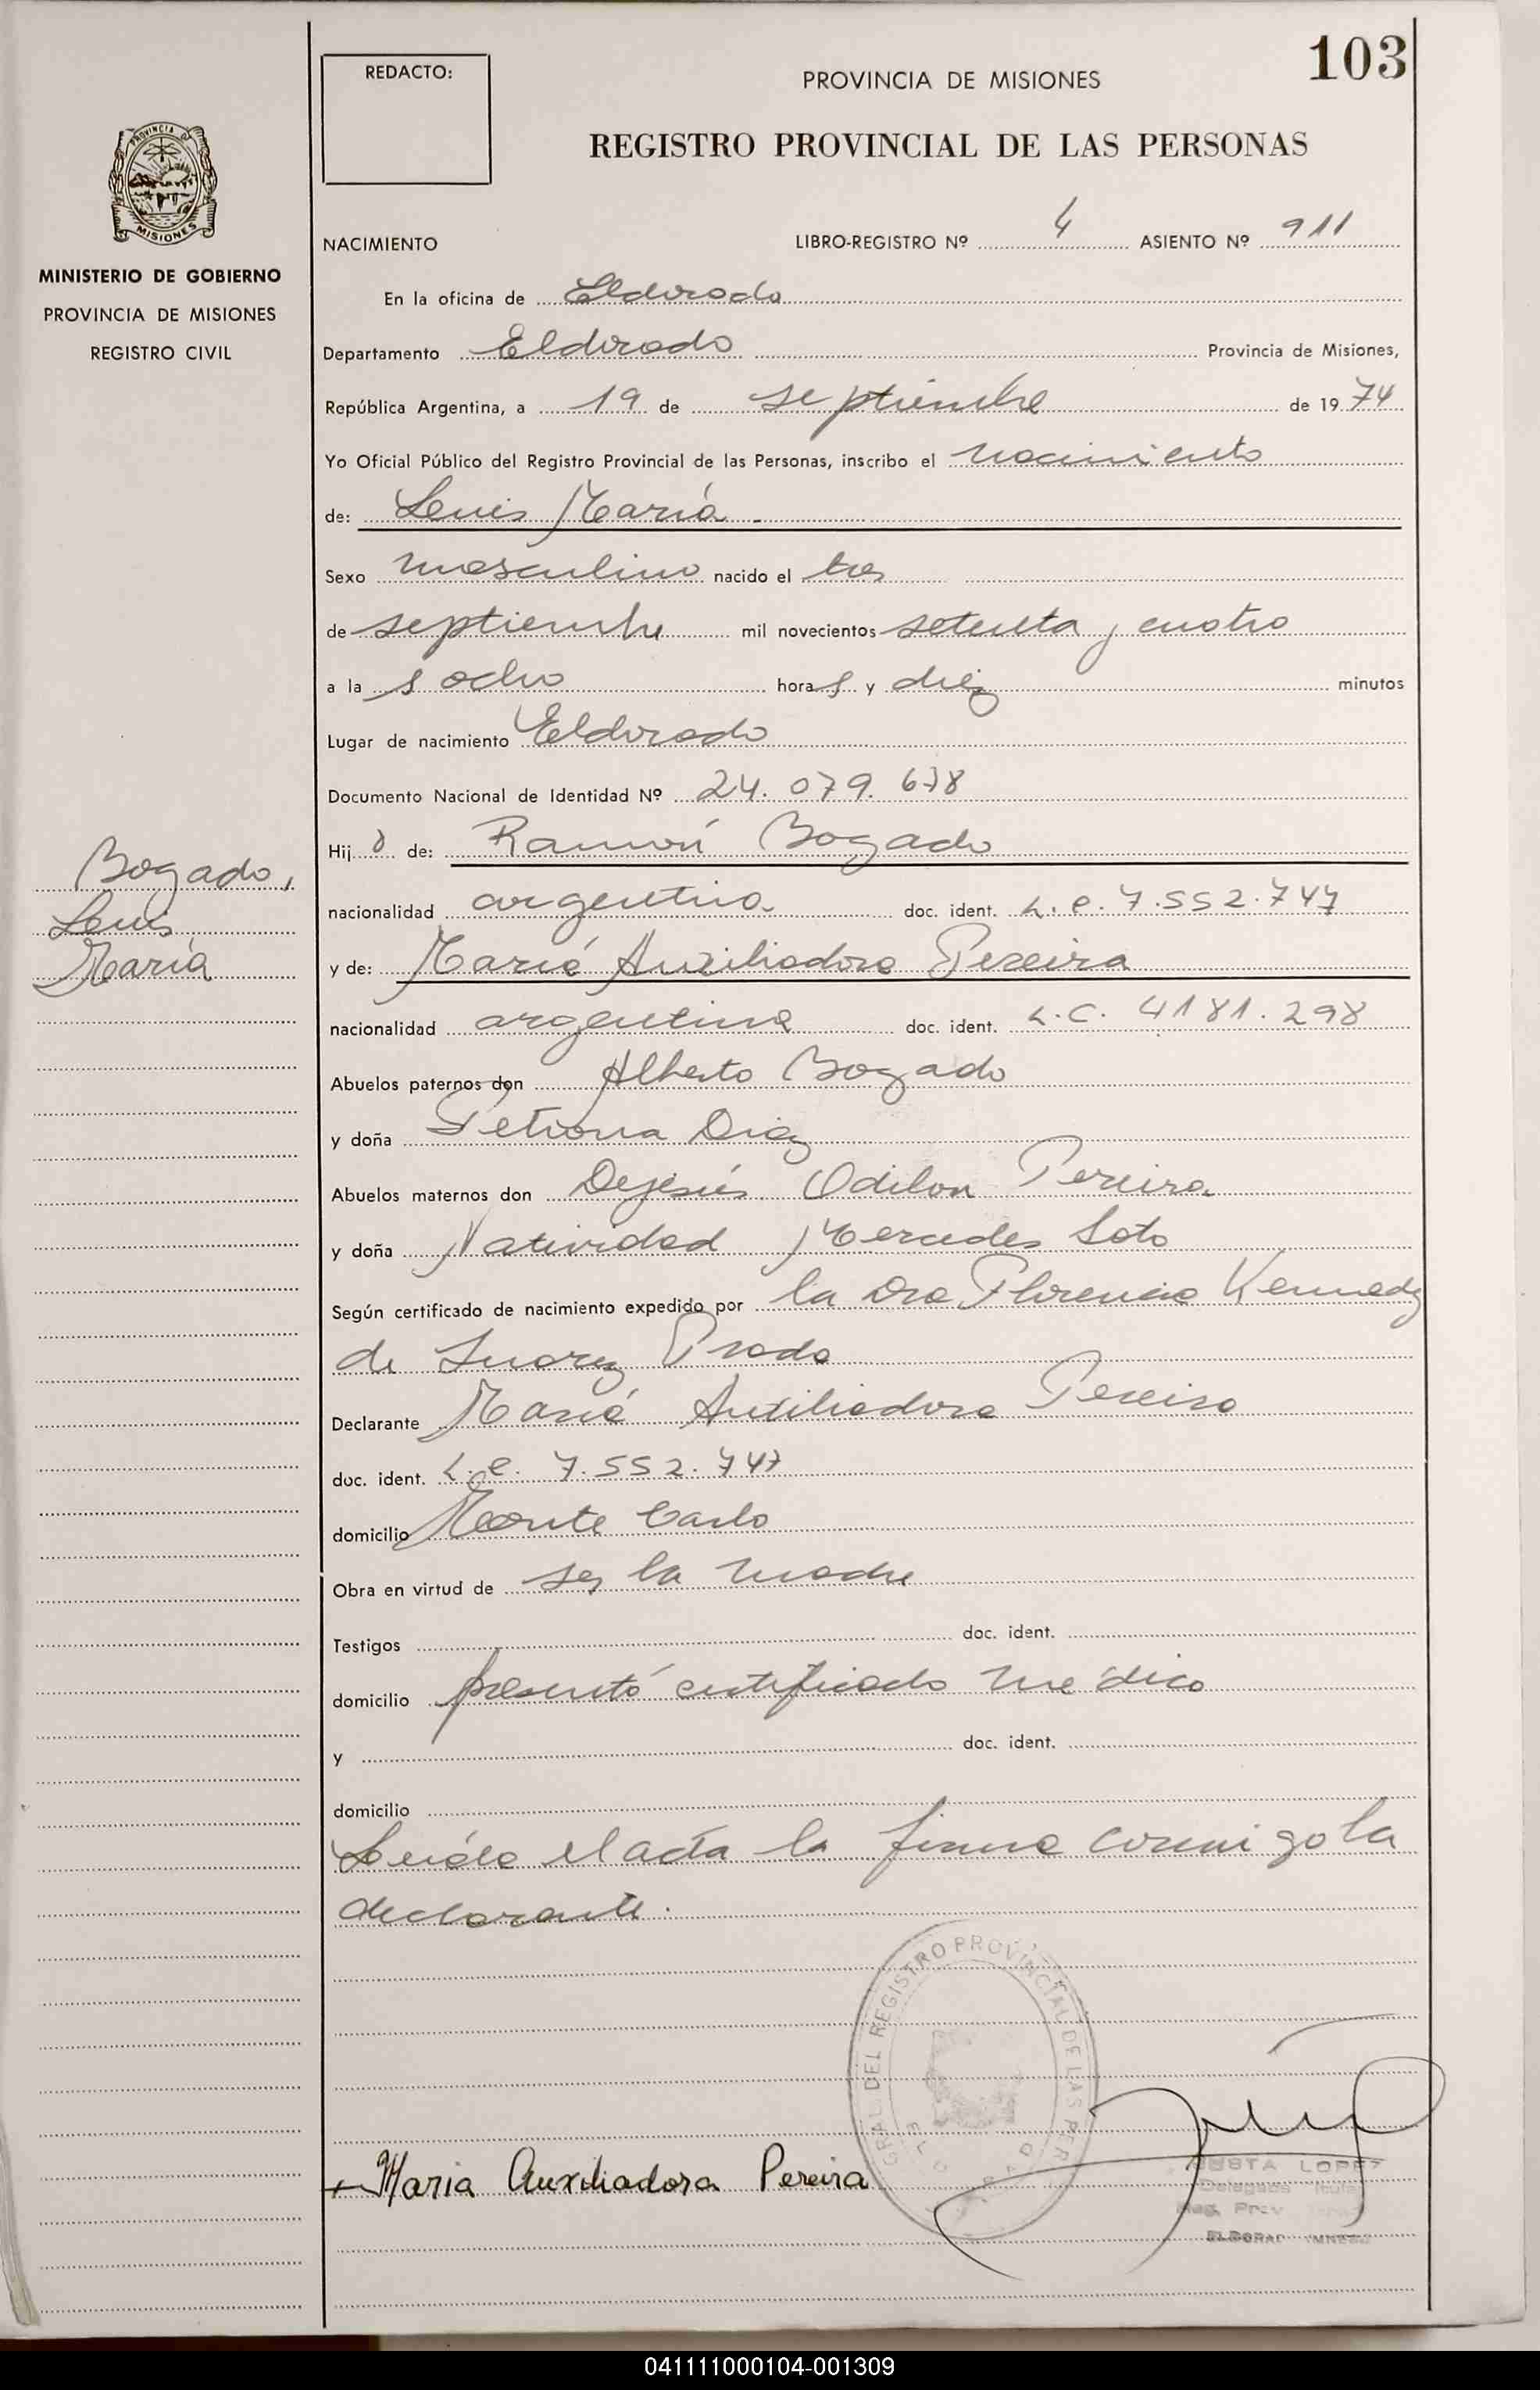 103
REDACTO:
PROVINCIA DE MISIONES
REGISTRO PROVINCIAL DE LAS PERSONAS
PROVINCIA DE
MISIONES
MINISTERIO DE GOBIERNO
PROVINCIA DE MISIONES
REGISTRO CIVIL
NACIMIENTO LIBRO-REGISTRO Nº 4 ASIENTO Nº 911
En la oficina de Eldorado
Departamento Eldorado Provincia de Misiones,
República Argentina, a 19 de septiembre de 1974
Yo Oficial Público del Registro Provincial de las Personas, inscribo el nacimiento
de: Luis María
Sexo masculino nacido el tres
de septiembre mil novecientos setenta y cuatro
a las ocho horas y diez minutos
Lugar de nacimiento Eldorado
Documento Nacional de Identidad Nº 24.079.678
Hijo de: Ramón Bogado
Bogado,
Luis
María
nacionalidad argentina doc. ident. L.e. 7.552.747
y de: María Auxiliadora Pereira
nacionalidad argentina doc. ident. L.C. 4181.298
Abuelos paternos don Alberto Bogado
y doña Petrona Diaz
Abuelos maternos don Dejesús Odilon Pereira
y doña Natividad Mercedes Soto
Según certificado de nacimiento expedido por la Dra Florencia Kennedy
de Suarez Prado
Declarante María Auxiliadora Pereira
doc. ident. L.e. 7.552.747
domicilio Monte Carlo
Obra en virtud de ser la madre
Testigos doc. ident.
domicilio presentó certificado médico
y doc. ident.
domicilio
Leída el acta la firma conmigo la
declarante.
GRAL DEL REGISTRO PROVINCIAL DE LAS PER
+ Maria Auxiliadora Pereira
LOPEZ
041111000104-001309